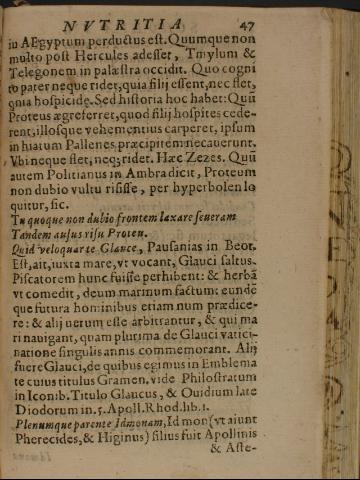 NVTRITIA 47
iu AEgyptum perductus est. Quumque non
multo post Hercules adesset, Tmylum &
Telegonem in palæstra occidit. Quo cogni
to pater neque ridet, quia filij essent, nec flet,
quia hospicidę. Sed historia hoc habet: Quū
Proteus ægreferret, quod filij hospites cede-
rent, illosque vehementius carperet, ipsum
in hiatum Pallenes præcipitem necauerunt.
Vbi neque flet, neq; ridet. Hæc Zezes. Quū
autem Politianus in Ambra dicit, Proteum
non dubio vultu risisse, per hyperbolen lo
quitur, sic.
Tu quoque non dubio frontem laxare seueram
Tandem ausus risu Proteu.
Quid veloquar te Glauce, Pausanias in Beot.
Est, ait, iuxta mare, vt vocant, Glauci saltus.
Piscatorem hunc fuisse perhibent: & herbā
vt comedit, deum marinum factum: eundē
que futura hominibus etiam num prædice-
re: & alij uerum esse arbitrantur, & qui ma
ri nauigant, quam plurima de Glauci vatici-
natione singulis annis commemorant. Alij
fuere Glauci, de quibus egimus in Emblema
te cuius titulus Gramen. vide Philostratum
in Iconib. Titulo Glaucus, & Ouidium late
Diodorum in. 5. Apoll. Rhod. lib. 1.
Plenumque parente Idmonam, Idmon (vt aiunt
Pherecides, & Higinus) filius fuit Apollinis
& Aste-